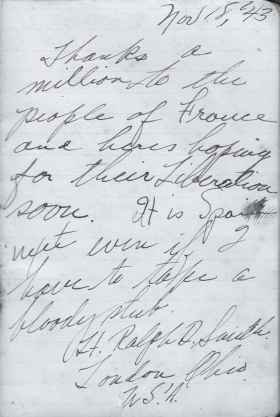 Nov 18, '43
Thanks a
million to the
people of France
and heres hoping
for their Liberation
soon. It is Spain
next even if I
have to take a
bloody sub.
Lt. Ralph D. Smith.
London Ohio.
U.S.A.